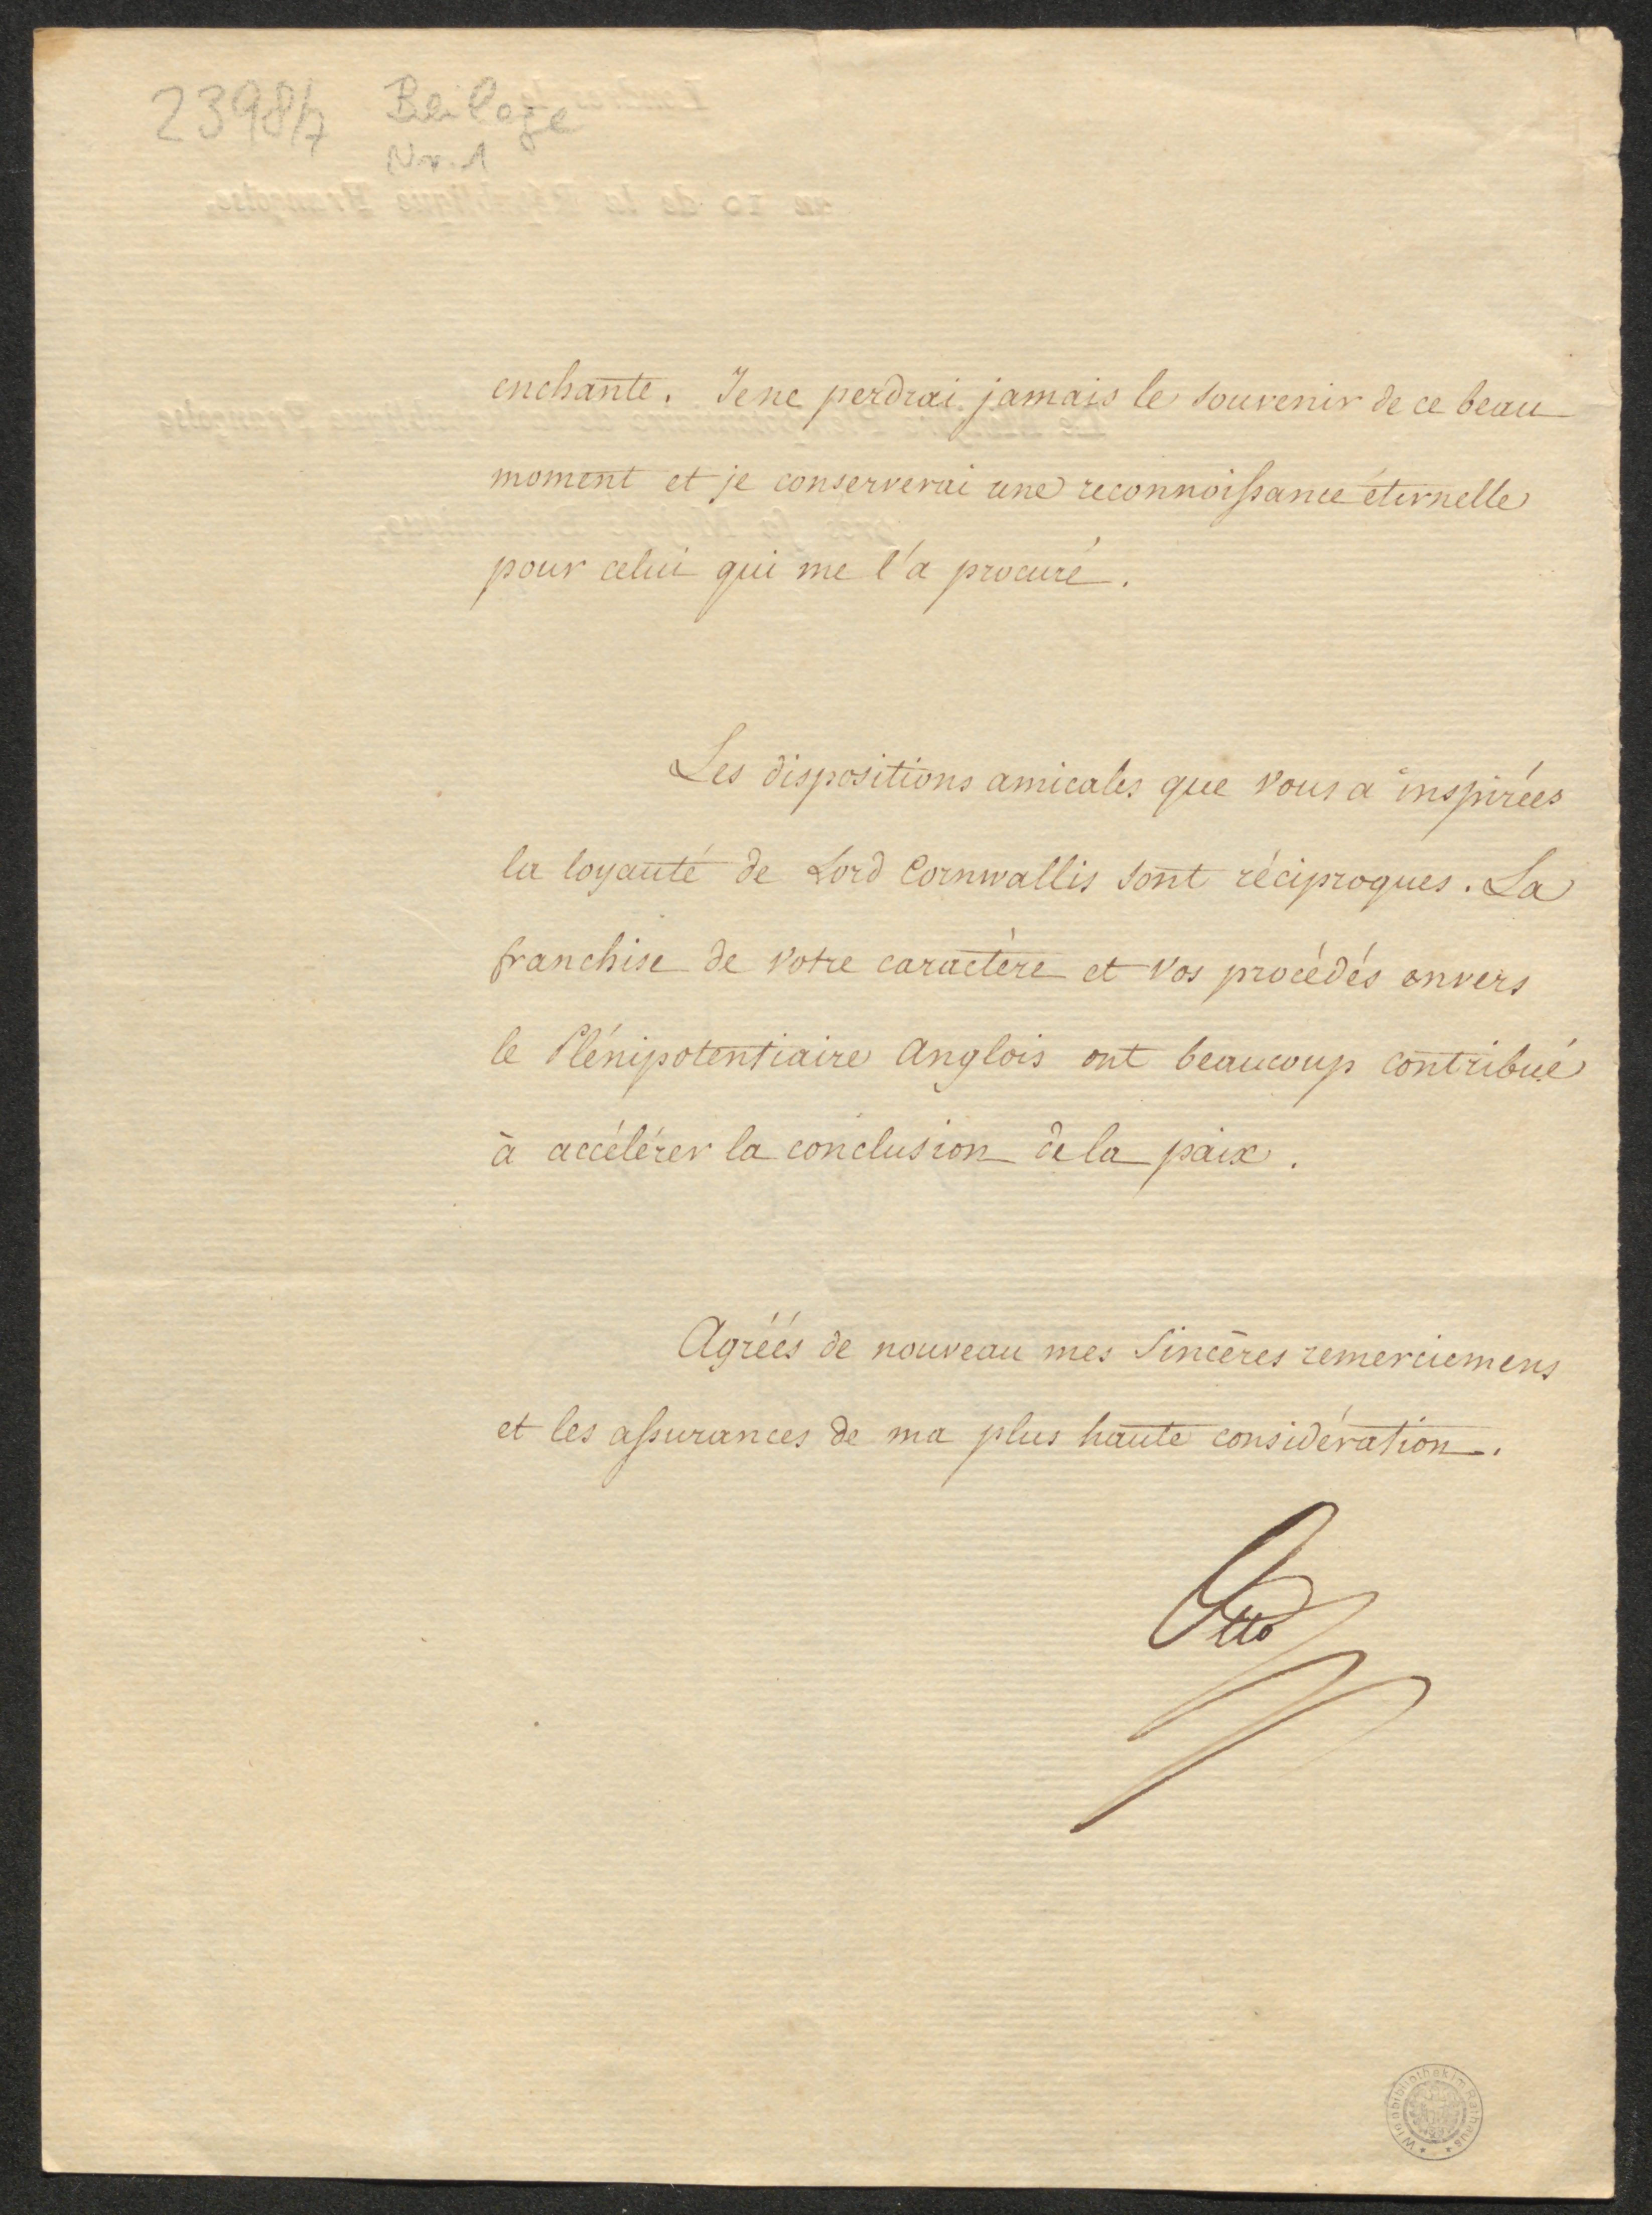 23984 Beilage
Nr. 1
enchanté. Je ne perdrai jamais le souvenir de ce beau
moment et je conserverai une reconnoissance éternelle
pour celui qui me l'a procuré.
Les dispositions amicales que vous a inspirées
la loyauté de Lord Cornwallis sont réciproques. La
franchise de votre caractère et vos procédés envers
le Plénipotentiaire anglois ont beaucoup contribué
à accélérer la conclusion de la paix.
Agréés de nouveau mes sincères remerciemens
et les assurances de ma plus haute considération.
Otto
Wienbibliothek im Rathaus